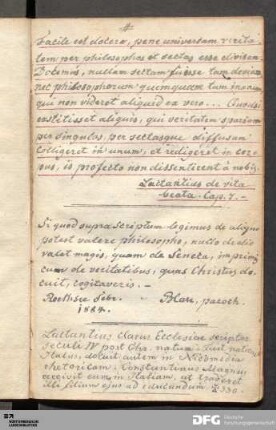 Facile est docere, pene universam verita-
tem per philosophos et sectas esse divisam.
Docemus, nullam sectam fuisse tam deviam
nec philosophorum quemquam tam inanem
qui non viderit aliquid ex vero... Quodsi
exstitisset aliquis, qui veritatem sparsam
per singulos per sectasque diffusam
colligeret in unum, et redigeret in cor-
pus, is profecto non dissentiret a nobis.
Lactantius de vita
beata. Cap. 7. –
Si quod supra scriptum legimus de aliquo
potest valere philosopho, nullo certe
valet magis, quam de Seneca, imprimis
cum de veritatibus, quas Christus do-
cuit, cogitaveris. –
Febr. paroch.
1884.
Lactantius clarus Ecclesiae scriptor
seculi IV post Chr. natum, fuit natione
Italus, docuit autem in Nicomedia
rhetoricam. Constantinus Magnus
accivit eum in Italiam, et tradidit
illi filium ejus ad educandum. † 330.
DFG Deutsche
Forschungsgemeinschaft